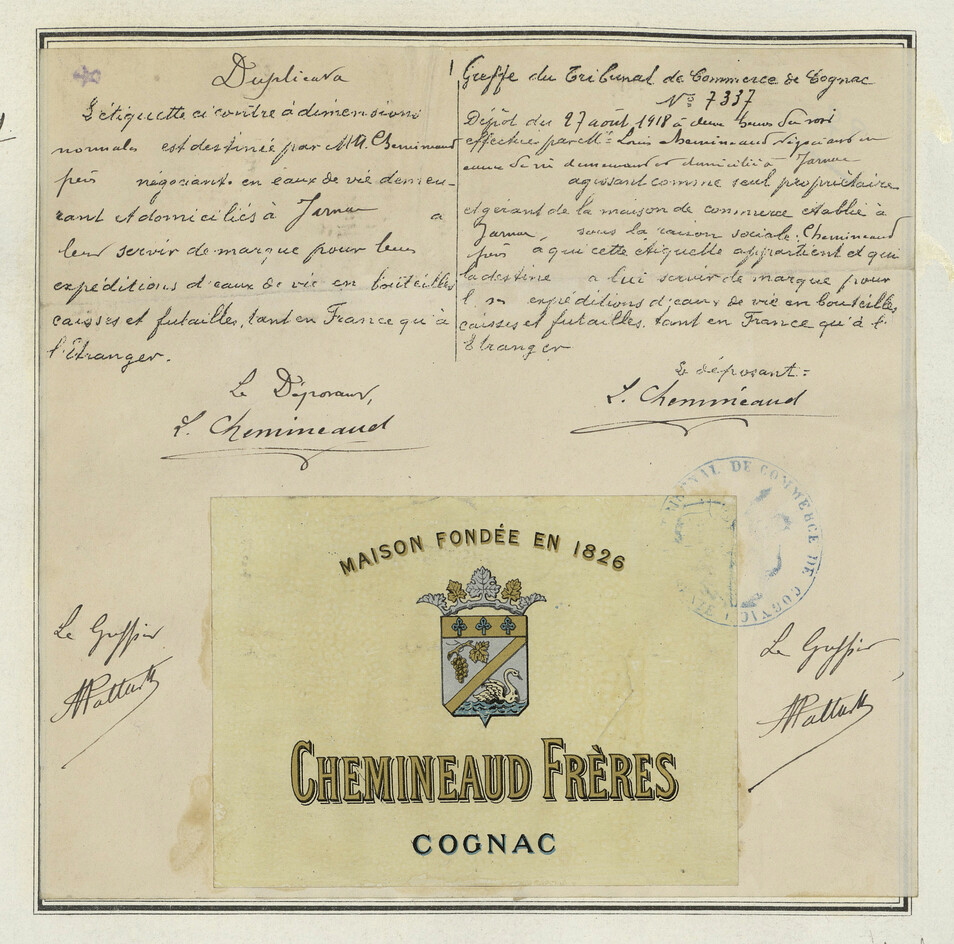 Duplicata
L'étiquette ci contre à dimensions
normales est destinée par MM. Chemineaud
négociants en eaux de vie demeu-
rant et domiciliés à Jarnac a
leur servir de marque pour leurs
expéditions d'eaux de vie en bouteilles
caisses et futailles, tant en France qu'à
l'Etranger.
Le Déposant,
L. Chemineaud
Greffe du Tribunal de Commerce de Cognac
No 7337
Dépôt du 27 août 1918 à deux heures du soir
effectué par Mr Louis Chemineaud négociant en
eaux de vie demeurant et domicilié à Jarnac
agissant comme seul propriétaire
et gérant de la maison de commerce établie à
Jarnac, sous la raison sociale: Chemineaud
à qui cette étiquette appartient et qui
la destine a lui servir de marque pour
expéditions d'eaux de vie en bouteilles
caisses et futailles, tant en France qu'à l'
Etranger
Le déposant =
L. Chemineaud
TRIBUNAL DE COMMERCE DE COGNAC
MAISON FONDÉE EN 1826
CHEMINEAUD FRÈRES
COGNAC
Le Greffier
Le Greffier